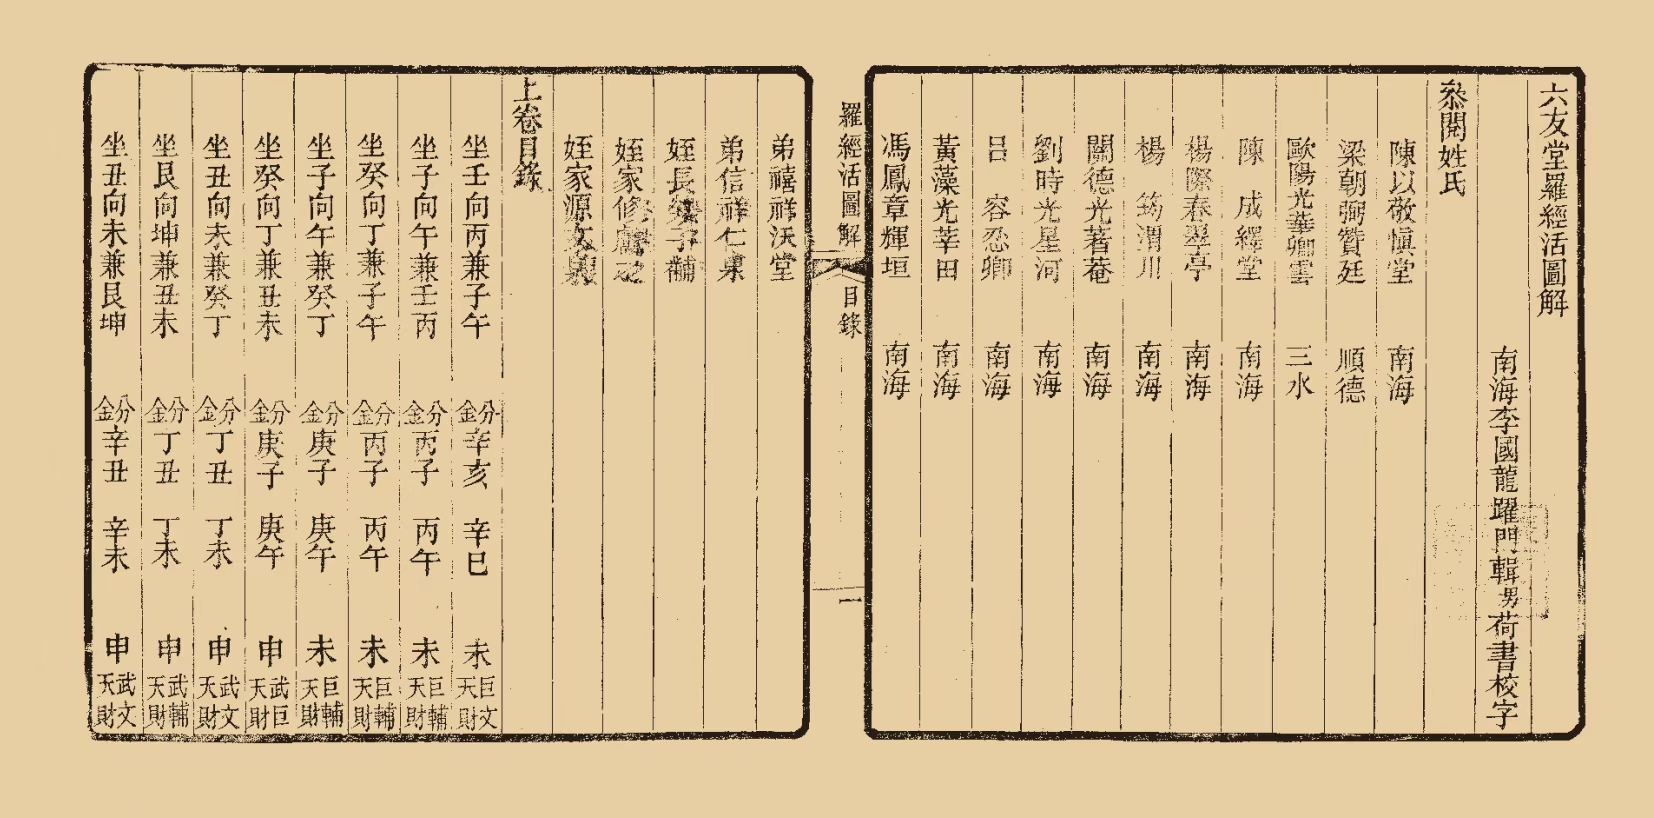 六友堂羅經活圖解
南海李國龍躍門輯男荷書校字
叅閱姓氏
陳以敬慎堂 南海
梁朝弼贊廷 順德
歐陽光華卿雲 三水
陳 成繹堂 南海
楊際春翠亭 南海
楊 筠渭川 南海
關德光著菴 南海
劉時光星河 南海
呂 容忍卿 南海
黃藻光莘田 南海
馮鳳章輝垣 南海
羅經活圖解 目錄 一
弟禧祥沃堂
弟信祥仁泉
姪長子黼
姪家修之
姪家源文
上卷目錄
坐壬向丙兼子午 分金辛亥 辛巳 未巨文天財
坐子向午兼壬丙 分金丙子 丙午 未巨輔天財
坐癸向丁兼子午 分金丙子 丙午 未巨輔天財
坐子向午兼癸丁 分金庚子 庚午 未巨輔天財
坐癸向丁兼丑未 分金庚子 庚午 申武巨天財
坐丑向未兼癸丁 分金丁丑 丁未 申武文天財
坐艮向坤兼丑未 分金丁丑 丁未 申武輔天財
坐丑向未兼艮坤 分金辛丑 辛未 申武文天財